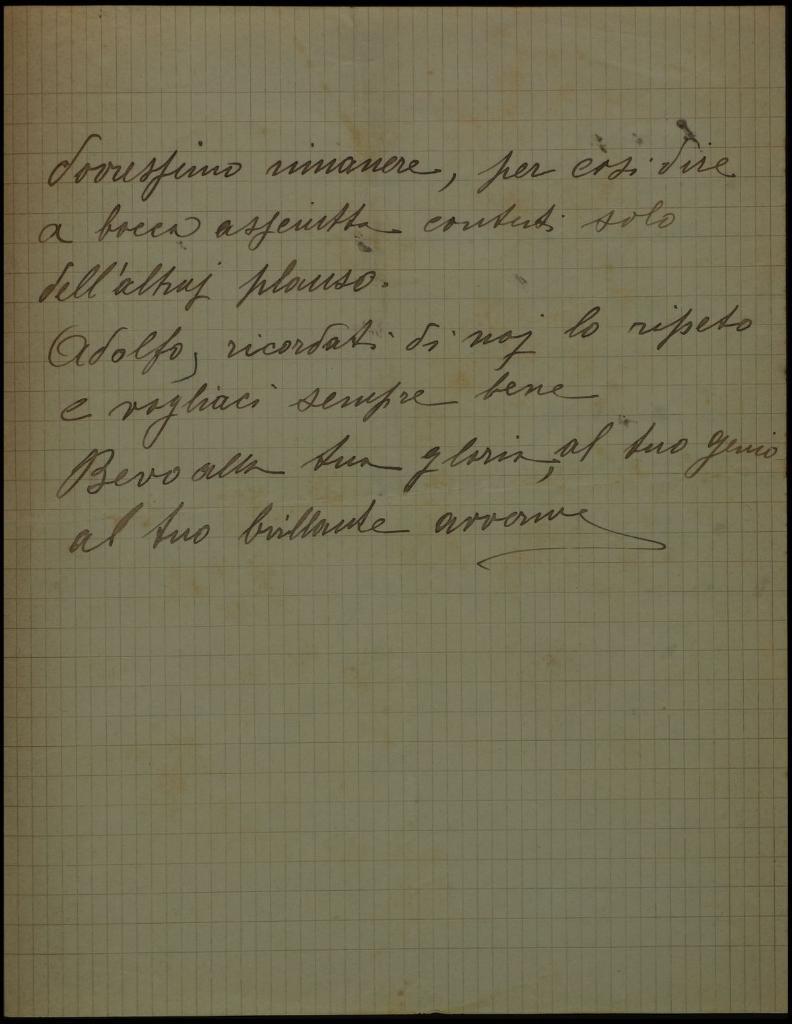 dovressimo rimanere, per così dire
a bocca assciutta contenti solo
dell'altruj plauso.
Adolfo, ricordati di noj lo ripeto
e vogliaci sempre bene
Bevo alla tua gloria, al tuo genio
al tuo brillante avvenire